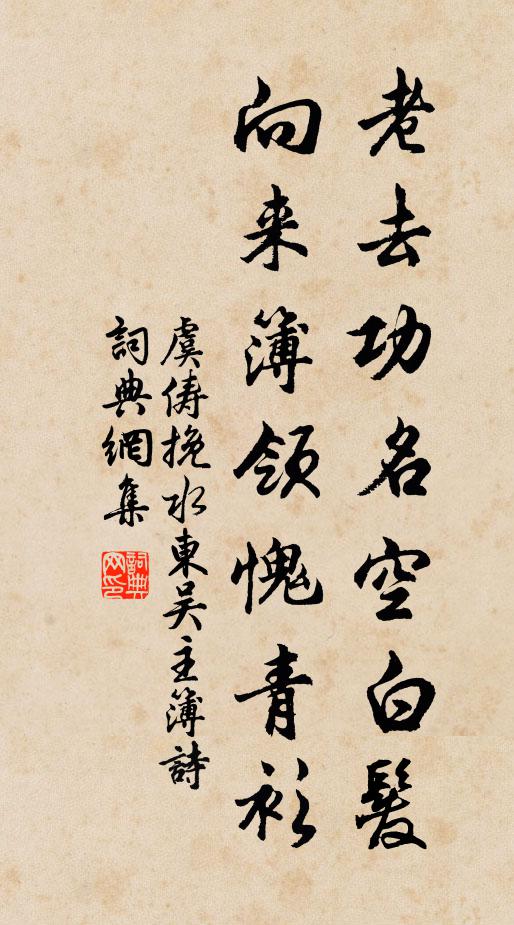 老去功名空白髮
向来簿領愧青衫
虞儔挽水東吴主簿詩
詞典網集
詞典
网印